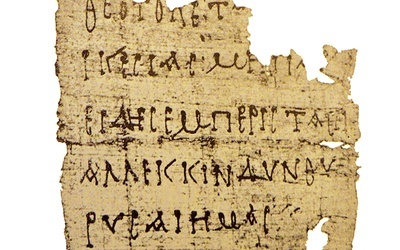 ΘΕΟΤΟΚΕΤ
ΙΚΕϹΙΑϹΜΗΠΑΡ
ΕΙΔΗϹΕΜΠΕΡΙϹΤΑϹ
ΑΛΛΕΚΚΙΝΔΥΝΟΥ
ΡΥϹΑΙΗΜΑϹ